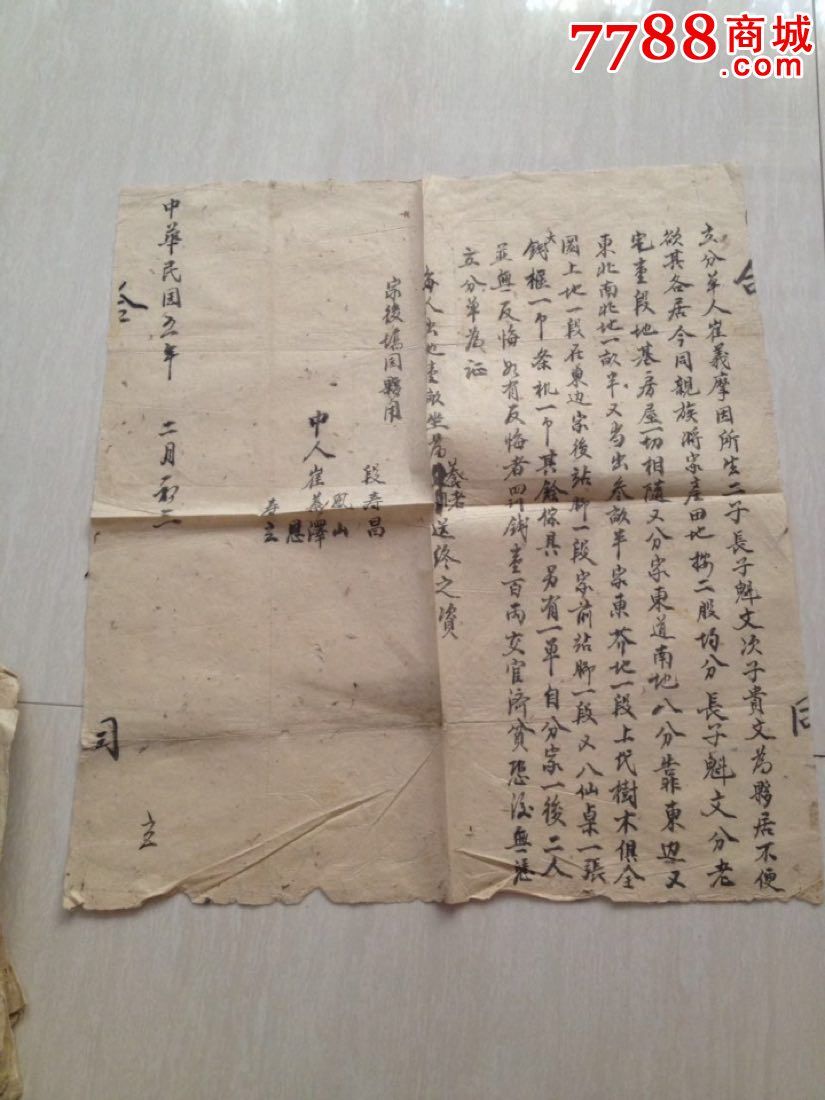 7788商城
.com
立分单人崔義摩因所生二子長子魁文次子貴文為夥居不便
欲其各居今同親族将家產田地按二股均分長子魁文分老
宅壹段地基房屋一切相隨又分家東道南地八分靠東边又
東北南北地一畝半又当出叁畝半家東地一段上代樹木俱全
上地一段在東边家後站脚一段家前站脚一段又八仙桌一張
大錢櫃一个条机一个其餘傢具另有一单自分家一後二人
並無反悔如有反悔者罰錢壹百两交官濟貧恐後無憑
立分单為证
每人出地壹畝坐為養老送終之資
家後場同夥用
段寿昌
鳳山
中人崔義澤
恩
寿立
中華民国五年 二月初六
合同
立